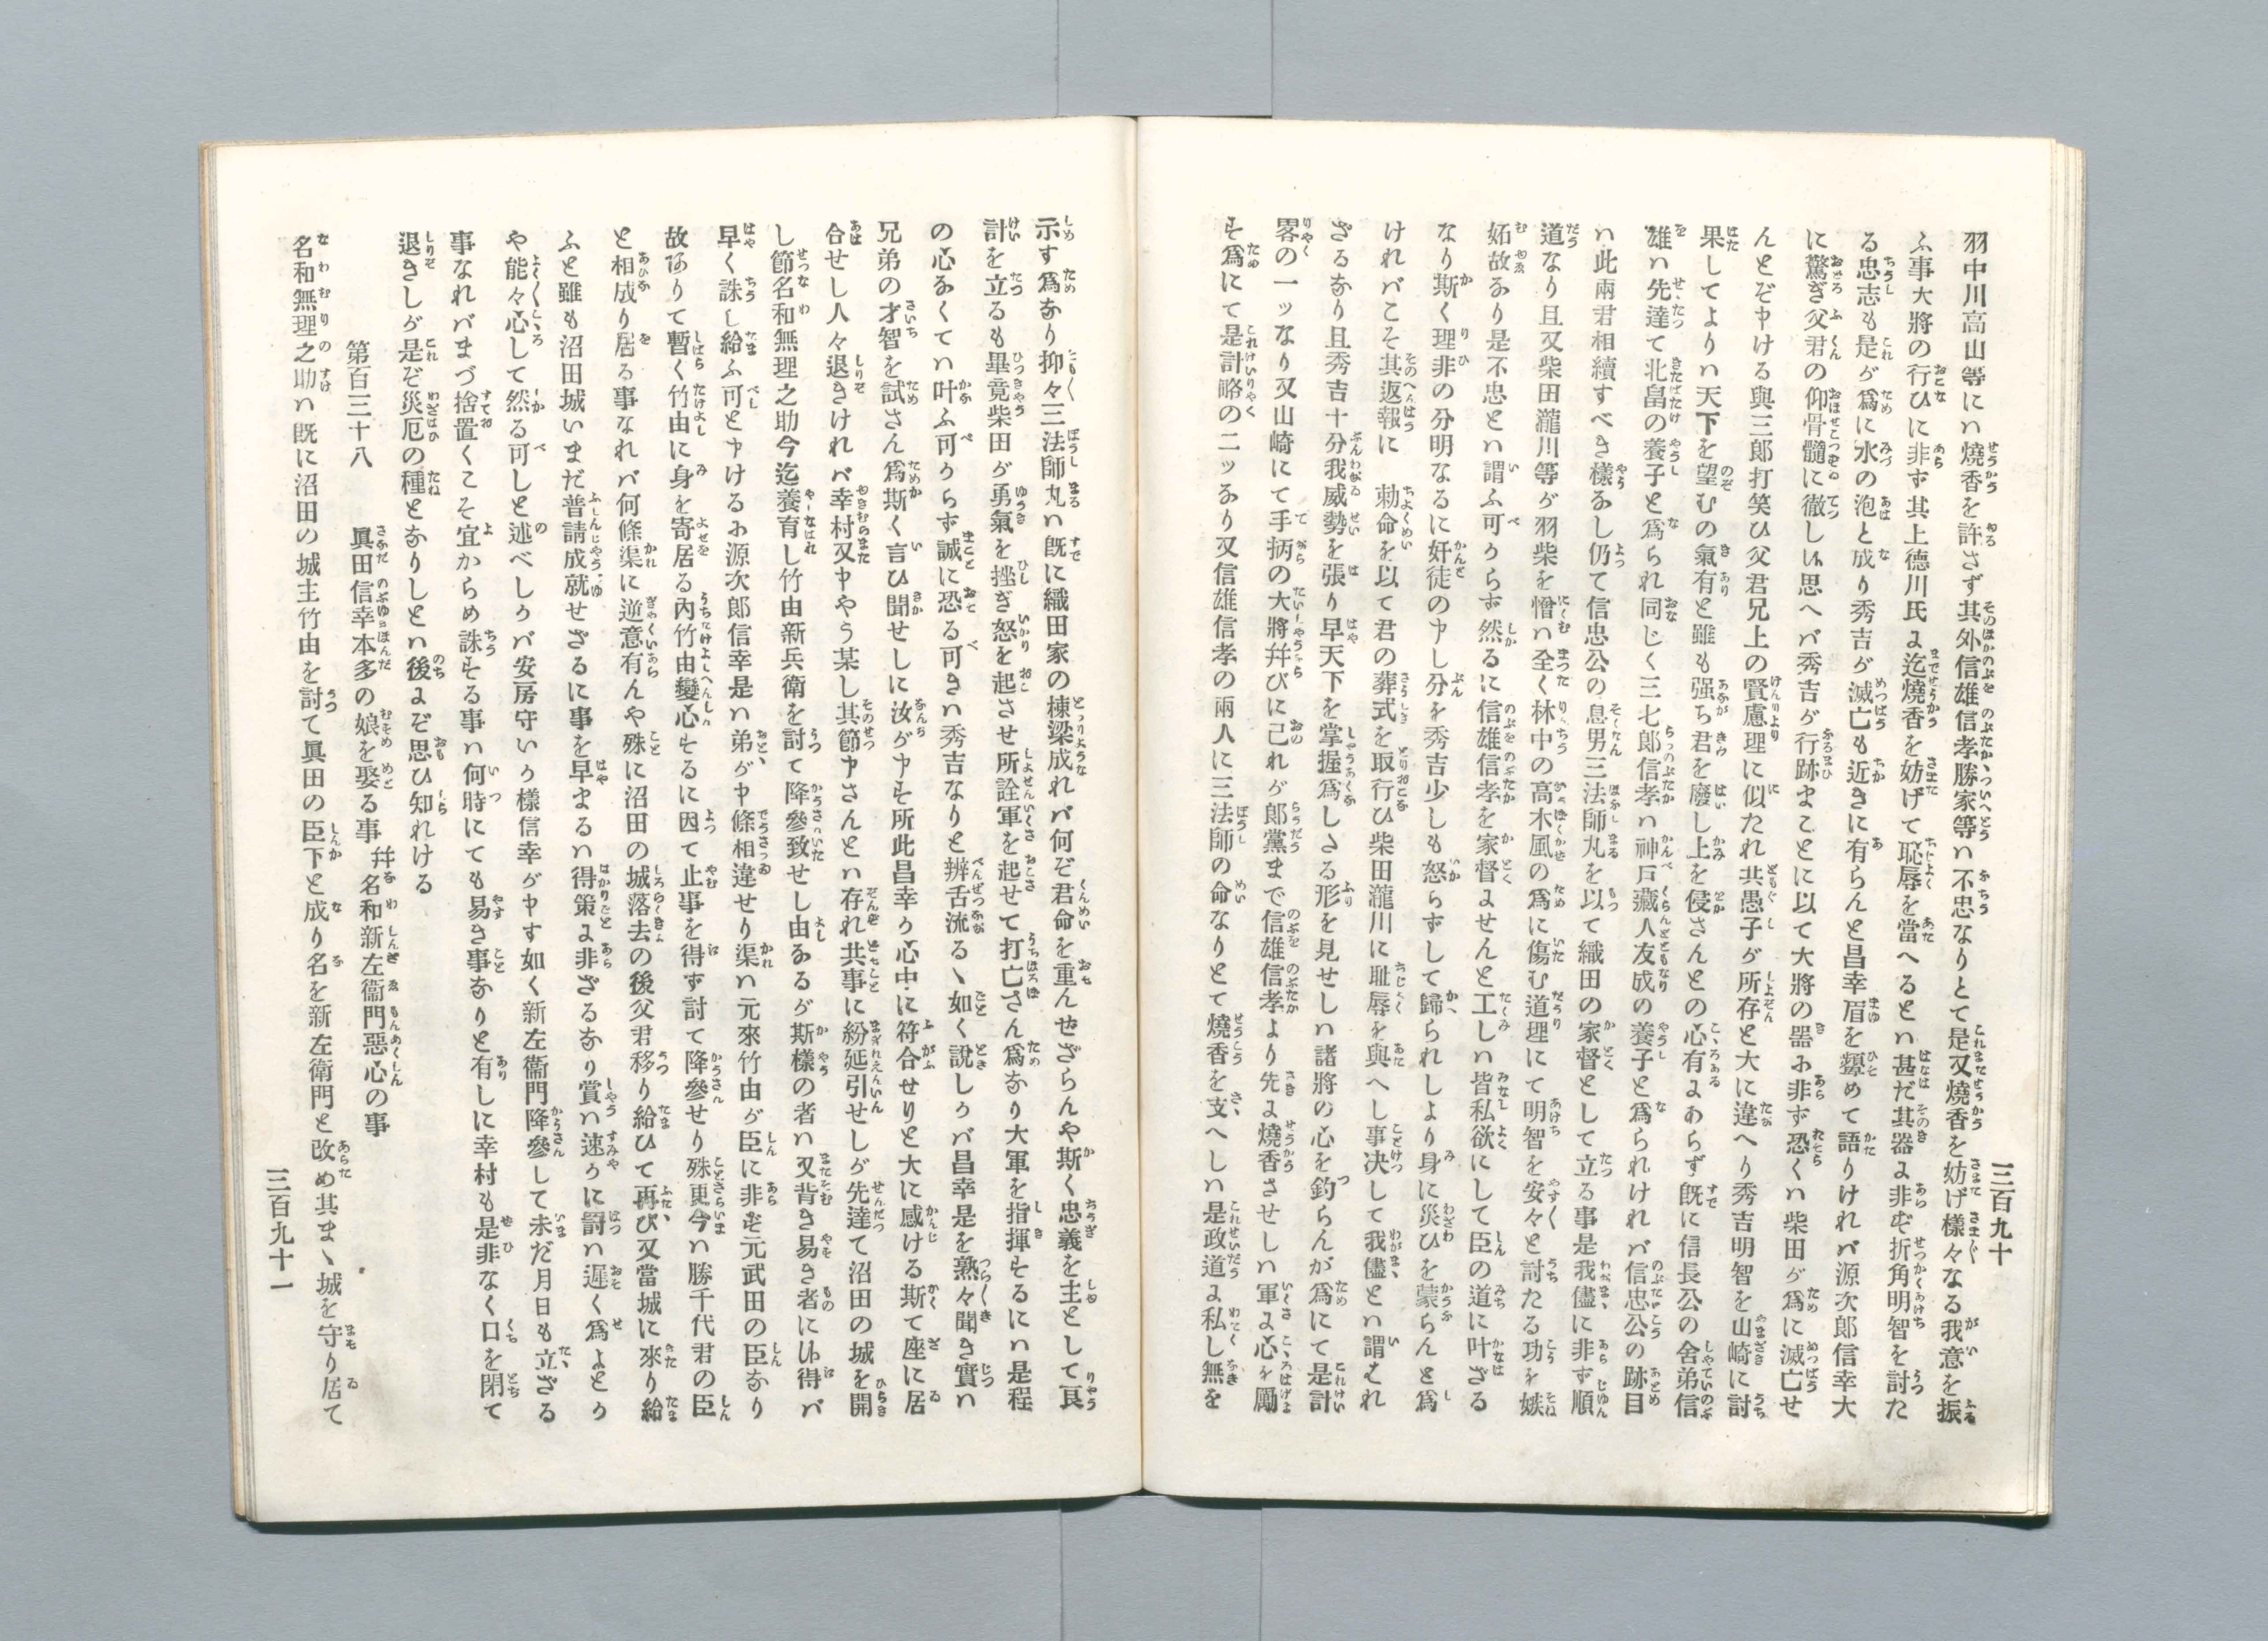 三百九十
羽中川高山等にハ燒香を許さず其外信雄信孝勝家等ハ不忠なりとて是又燒香を妨げ樣々なる我意を振
ふ事大將の行ひに非ず其上德川氏よ迄燒香を妨げて恥辱を當へるとハ甚だ其器よ非ず折角明智を討た
る忠志も是が爲に水の泡と成り秀吉が滅亡も近きに有らんと昌幸眉を顰めて語りけれバ源次郎信幸大
に驚ぎ父君の仰骨髓に徹し以思へバ秀吉が行跡まことに以て大將の器お非ず恐くハ柴田が爲に滅亡せ
んとぞ申ける與三郎打笑ひ父君兄上の賢慮理に似たれ共愚子が所存と大に違へり秀吉明智を山崎に討
果してよりハ天下を望むの氣有と雖も强ち君を廢し上を侵さんとの心有よあらず既に信長公の舍弟信
雄ハ先達て北畠の養子と爲られ同じく三七郎信孝ハ神戸藏人友成の養子と爲られけれバ信忠公の跡目
ハ此兩君相續すべき樣なし仍て信忠公の息男三法師丸を以て織田の家督として立る事是我儘に非ず順
道なり且又柴田瀧川等が羽柴を憎ハ全く林中の高木風の爲に傷む道理にて明智を安々と討たる功を嫉
妬故なり是不忠とハ謂ふ可からず然るに信雄信孝を家督よせんと工しハ皆私欲にして臣の道に叶ざる
なり斯く理非の分明なるに奸徒の申し分を秀吉少しも怒らずして歸られしより身に災ひを蒙らんと爲
けれバこそ其返報に　勅命を以て君の葬式を取行ひ柴田瀧川に耻辱を與へし事决して我儘とハ謂はれ
ざるなり且秀吉十分我威勢を張り早天下を掌握爲しさる形を見せしハ諸將の心を釣らんが爲にて是計
畧の一ッなり又山崎にて手抦の大將幷びに己れが郎黨まで信雄信孝より先よ燒香させしハ軍よ心を勵
す爲にて是計略の二ッなり又信雄信孝の兩人に三法師の命なりとて燒香を支へしハ是政道よ私し無を
示す爲なり抑々三法師丸ハ既に織田家の棟梁成れバ何ぞ君命を重んせざらんや斯く忠義を主として良
計を立るも畢竟柴田が勇氣を挫ぎ怒を起させ所詮軍を起せて打亡さん爲なり大軍を指揮するにハ是程
の心なくてハ叶ふ可からず誠に恐る可きハ秀吉なりと辨舌流るヽ如く說しかバ昌幸是を熟々聞き實ハ
兄弟の才智を試さん爲斯く言ひ聞せしに汝が申す所此昌幸か心中に符合せりと大に感ける斯て座に居
合せし人々退きけれバ幸村又申やう某し其節申さんとハ存れ共事に紛延引せしが先達て沼田の城を開
し節名和無理之助今迄養育し竹由新兵衛を討て降參致せし由なるが斯樣の者ハ又背き易き者に以得バ
早く誅し給ふ可と申けるお源次郎信幸是ハ弟が申條相違せり渠ハ元來竹由が臣に非ず元武田の臣なり
故ありて暫く竹由に身を寄居る內竹由變心するに因て止事を得ず討て降參せり殊更今ハ勝千代君の臣
と相成り居る事なれバ何條渠に逆意有んや殊に沼田の城落去の後父君移り給ひて再び又當城に來り給
ふと雖も沼田城いまだ普請成就せざるに事を早まるハ得策よ非ざるなり賞ハ速かに罰ハ遲く爲よとか
や能々心して然る可しと述べしかバ安房守いか樣信幸が申す如く新左衞門降參して未だ月日も立ざる
事なれバまづ捨置くこそ宜からめ誅する事ハ何時にても易き事なりと有しに幸村も是非なく口を閉て
退きしが是ぞ災厄の種となりしとハ後よぞ思ひ知れける
第百三十八　眞田信幸本多の娘を娶る事　幷名和新左衞門惡心の事
名和無理之助ハ既に沼田の城主竹由を討て眞田の臣下と成り名を新左衛門と改め其まヽ城を守り居て
三百九十一